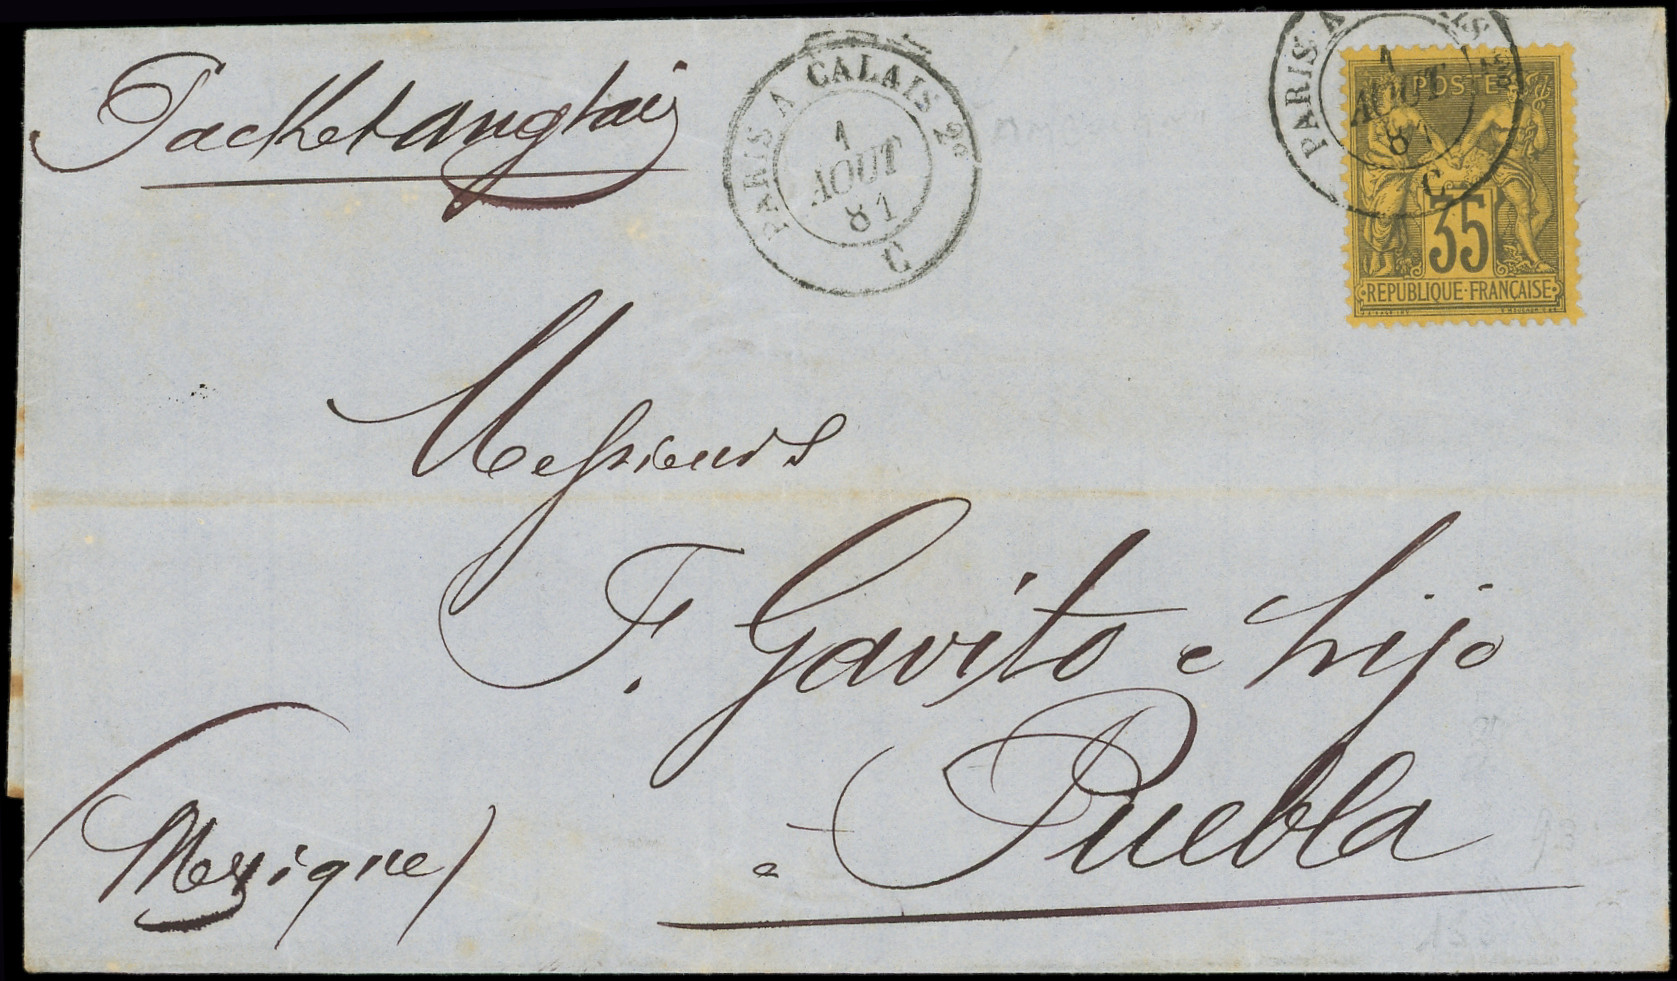 Packet anglais
PARIS A CALAIS 2°
1
AOUT
81
C
PARIS A
1
AOUT
81
C
POSTE
35
REPUBLIQUE·FRANÇAISE
Messieurs
F. Gavito e hijo
e Puebla
(Mexique)
93